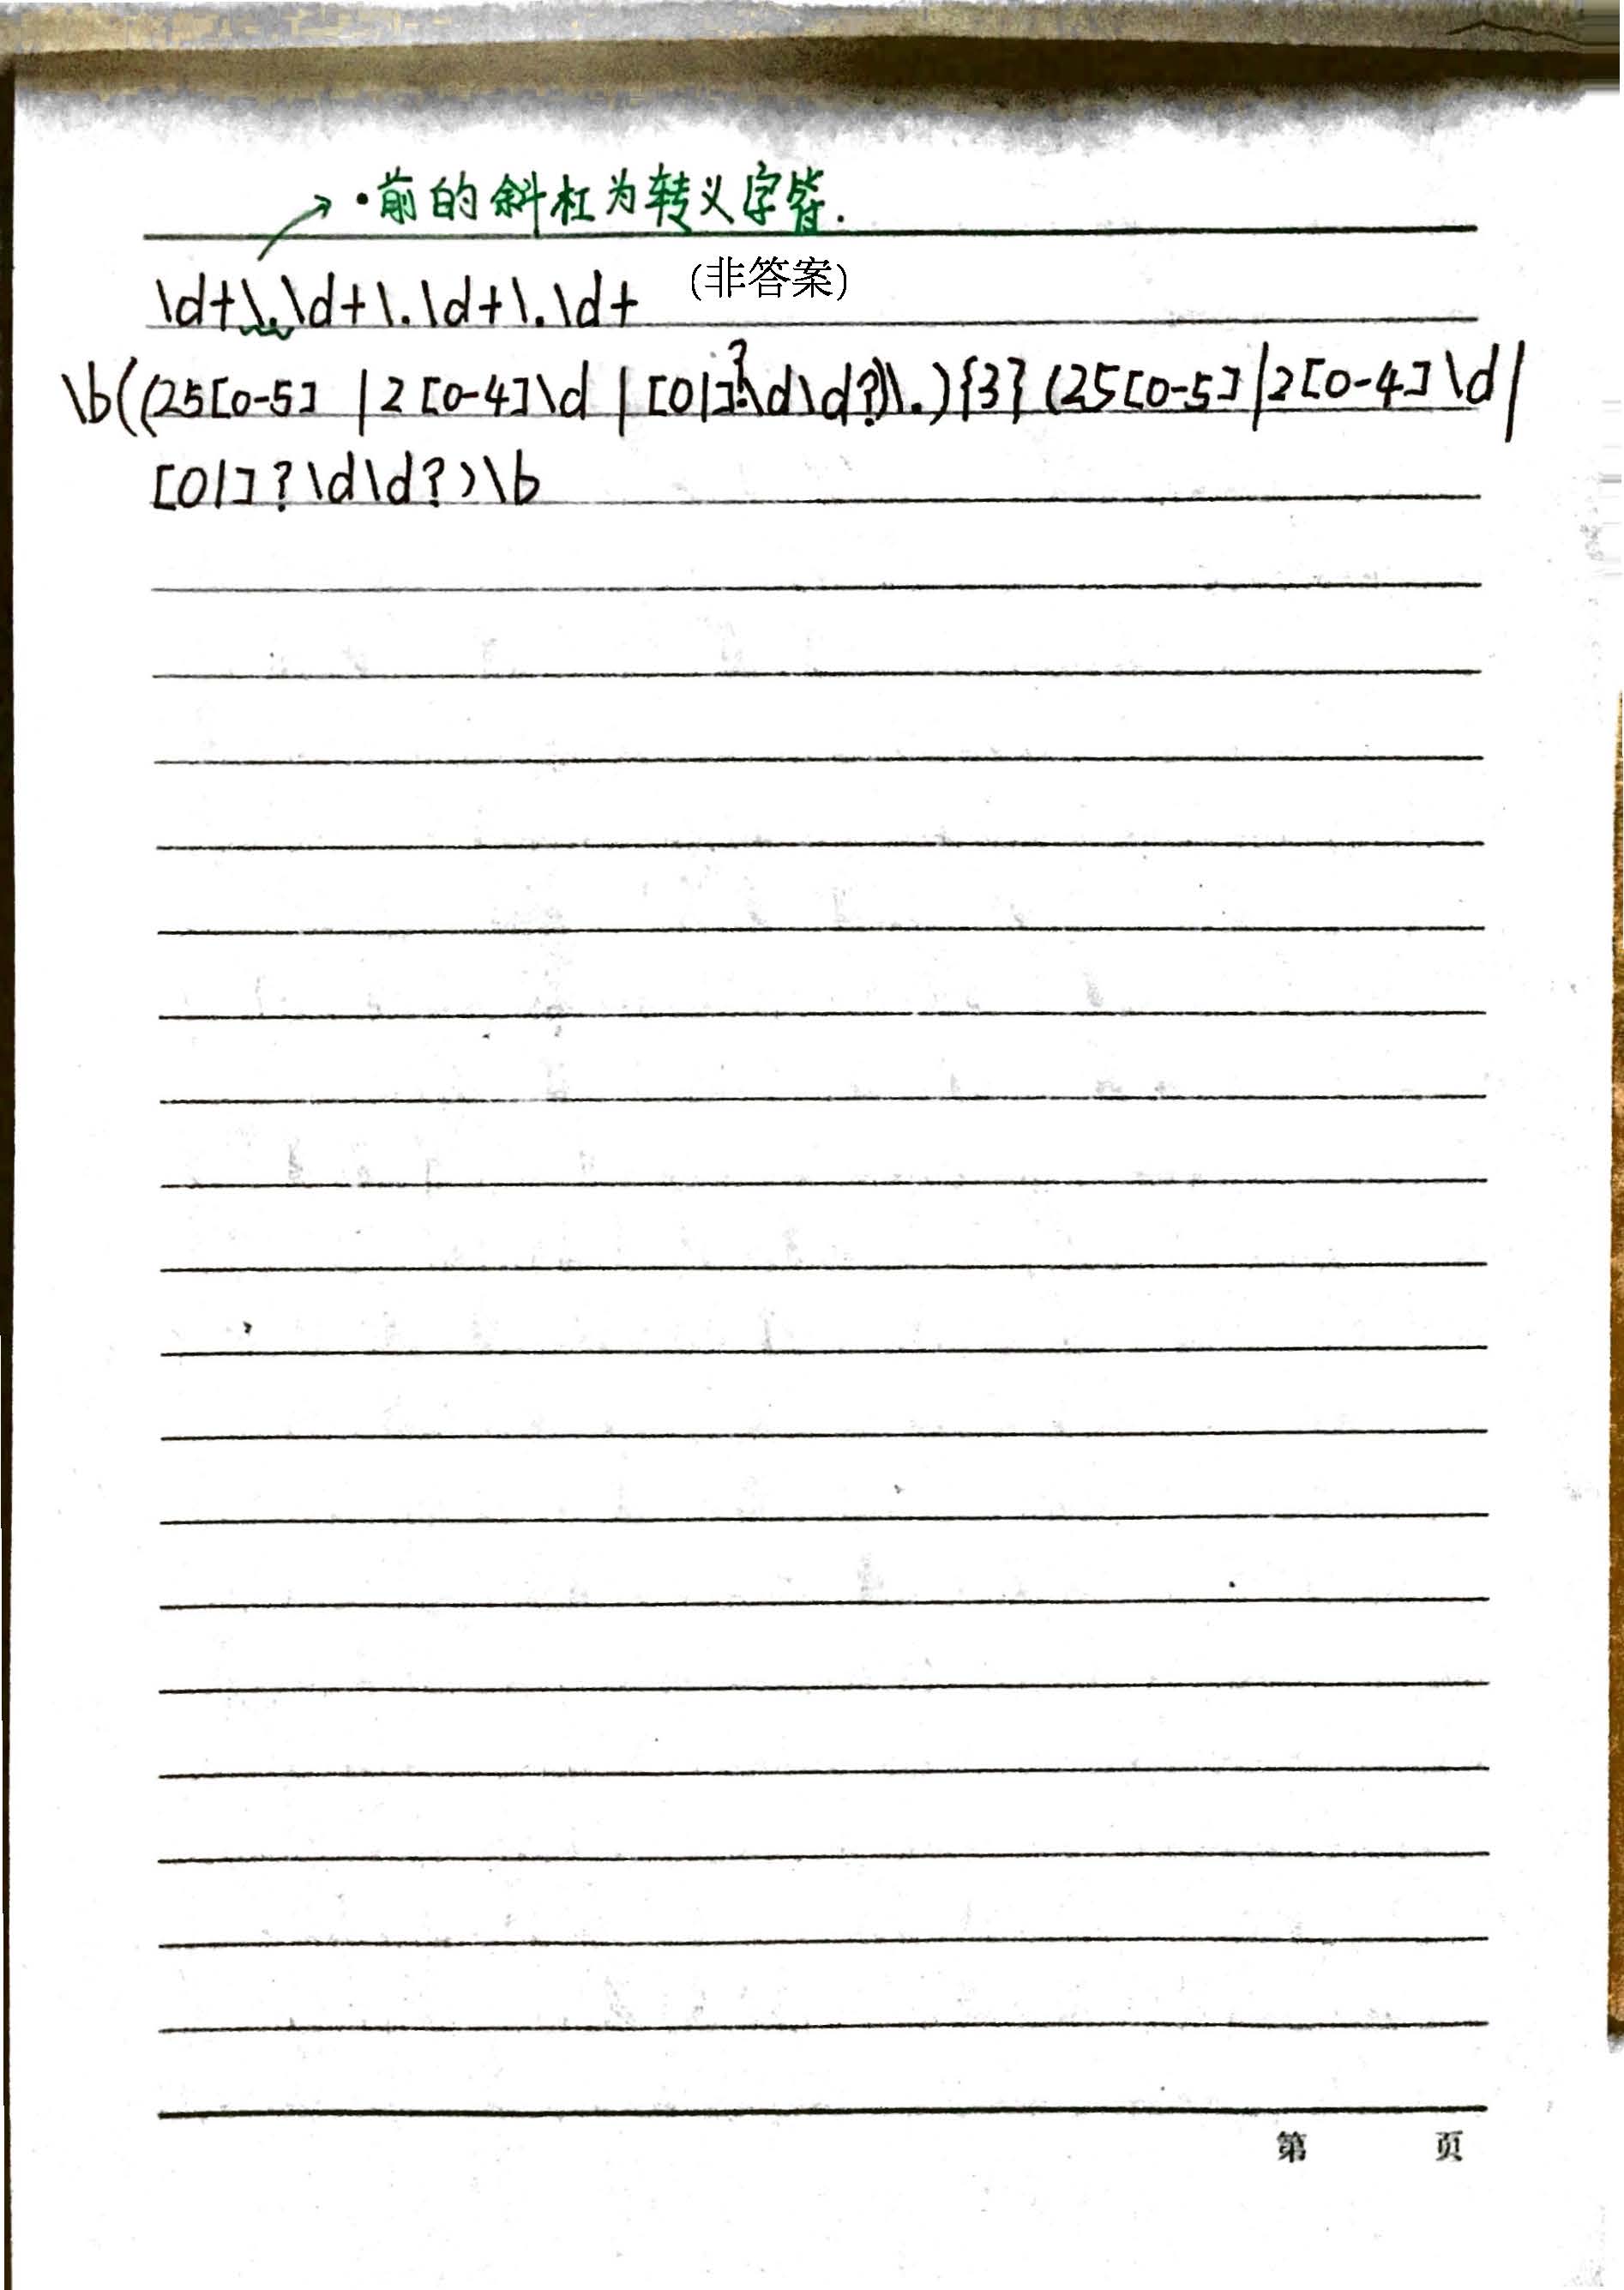 ·前的斜杠为转义字符.
\d+\.\d+\.\d+\.\d+ (非答案)
\b((25[0-5] |2[0-4]\d|[01]?\d\d?)\.){3}(25[0-5]|2[0-4]\d|
[01]?\d\d?)\b
第 页